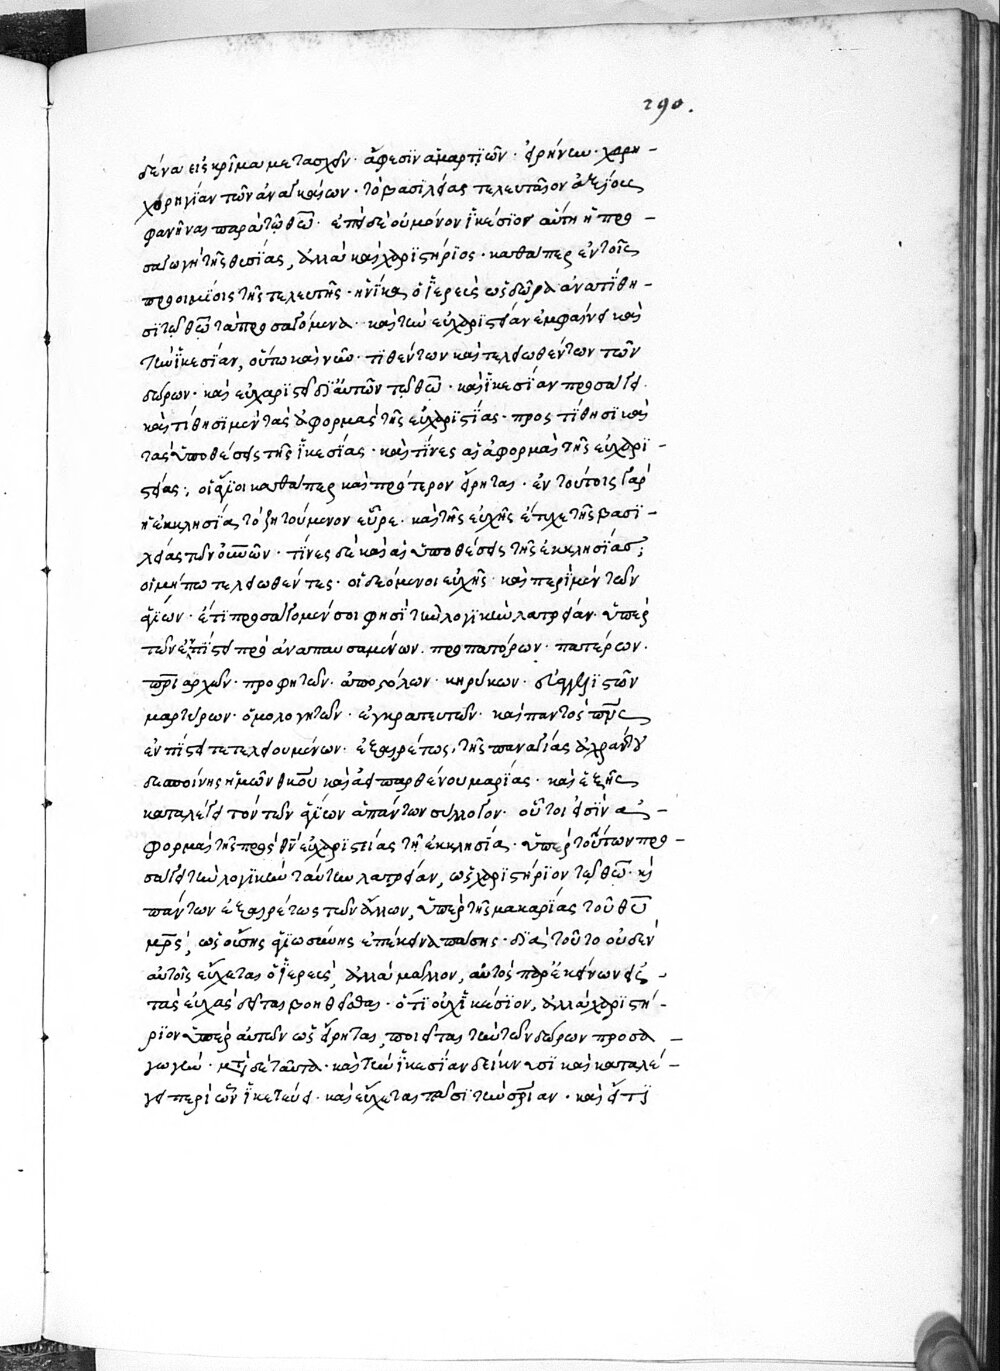 290.
δένα εἰς κρῖμα μετασχεῖν· ἄφεσϊν ἁμαρτϊῶν· εἰρήνην· χορη -
χορηγίαν τῶν ἀναγκαίων· τὸ βασιλείας τελευταῖον ἀξίους
φανῆναι παρὰ τῶ θ̅ω̅· ἐπεὶ δὲ οὐ μόνον ἱκέσϊον αὕτη ἡ προ -
σαγωγὴ τῆς θυσίας, ἀλλὰ καὶ χαρϊστήρϊος· καθάπερ ἐν τοῖς
προοιμίοις τῆς τελετῆς· ἡνίκα ὁ ἱερεὺς ὡς δῶρα ἀνατίθη -
σϊ τῶ θ̅ω̅ τὰ προσαγόμενα· καὶ τὴν εὐχαρϊστίαν ἐμφαίνει καὶ
τὴν ἱκεσίαν, οὕτω καὶ νῦν· τϊθέντων καὶ τελειωθέντων τῶν
δώρων· καὶ εὐχαρϊστεῖ δϊ' αὐτῶν τῶ θ̅ω̅· καὶ ἱκεσίαν προσάγει·
καὶ τίθησϊ μὲν τὰς ἀφορμὰς τῆς εὐχαρϊστίας· προστίθησϊ καὶ
τὰς ὑποθέσεις τῆς ἱκεσίας· καὶ τίνες αἱ ἀφορμαὶ τῆς εὐχαρϊ -
στίας; οἱ ἅγϊοι καθάπερ καὶ πρότερον εἴρηται· ἐν τούτοις γὰρ
ἡ ἐκκλησία τὸ ζητούμενον εὗρε· καὶ τῆς εὐχῆς ἐπέτυχε τῆς βασϊ -
λείας τῶν ο̅υ̅ν̅ῶν· τίνες δὲ καὶ αἱ ὑποθέσεις τῆς ἐκκλησίας;
οἱ μήπω τελειωθέντες· οἱ δεόμενοι εὐχῆς· καὶ περὶ μὲν τῶν
ἁγίων· ἔτϊ προσάγομέν σοι φησὶ τὴν λογϊκὴν λατρείαν· ὑπὲρ
τῶν ἐν πίστει προαναπαυσαμένων. προπατόρων· πατέρων·
π̅ρ̅ιαρχῶν· προφητῶν· ἀποστόλων· κηρύκων· εὐαγγελϊστῶν
μαρτύρων· ὁμολογητῶν· ἐγκρατευτῶν· καὶ παντὸς π̅ν̅ς
ἐν πίστει τετελειωμένων· ἐξαιρέτως, τῆς παναγίας ἀχράντου
δεσποίνης ἡμῶν θ̅κ̅ου καὶ ἀεὶ παρθένου μαρίας· καὶ ἑξῆς
καταλέγει τὸν τῶν ἁγίων ἁπάντων σύλλογον· οὗτοι εἰσὶν ἀ -
φορμαὶ τῆς πρὸς θ̅ν̅ εὐχαρϊστίας τῆ ἐκκλησία· ὑπὲρ τούτων προ -
σάγει τὴν λογϊκὴν ταύτην λατρείαν, ὡς χαρϊστήρϊον τῶ θ̅ω̅· κ̀
πάντων ἐξαιρέτως τῶν ἄλλων, ὑπὲρ τῆς μακαρίας τοῦ θ̅υ̅
μ̅ρ̅ς, ὡς οὔσης ἁγϊωσύνης ἐπέκεινα πάσης· δϊὰ τοῦτο οὐδὲν
αὐτοῖς εὔχεται ὁ ἱερεὺς, ἀλλὰ μᾶλλον, αὐτὸς παρ' ἐκείνων εἰς -
τὰς εὐχὰς δεῖται βοηθεῖσθαι· ὅτϊ οὐχ ἱκέσϊον, ἀλλὰ χαρϊστή -
ρϊον ὑπὲρ αὐτῶν ὡς εἴρηται, ποιεῖται τὴν τῶν δώρων προσα -
γωγήν· μετὰ δὲ ταῦτα· καὶ τὴν ἱκεσίαν δείκνυσϊ καὶ καταλέ -
γει περὶ ὧν ἱκετεύει· καὶ εὔχεται πᾶσϊ τὴν σ̅ρ̅ίαν· καὶ εἴ τϊ